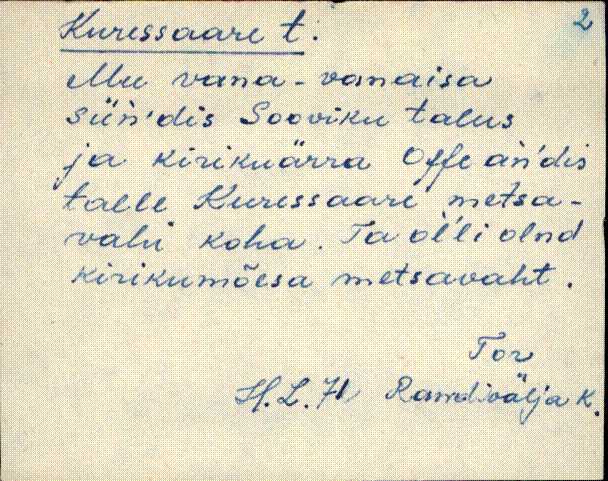 2
Kuressaare t.
Mu vana-vanaisa
sün'dis Sooviku talus
ja kirikuärra Offe an'dis
talle Kuressaare metsa-
vahi koha. Ta ol'li olnd
kirikumõesa metsavaht.
Tor
H.L. 71 Randivälja k.